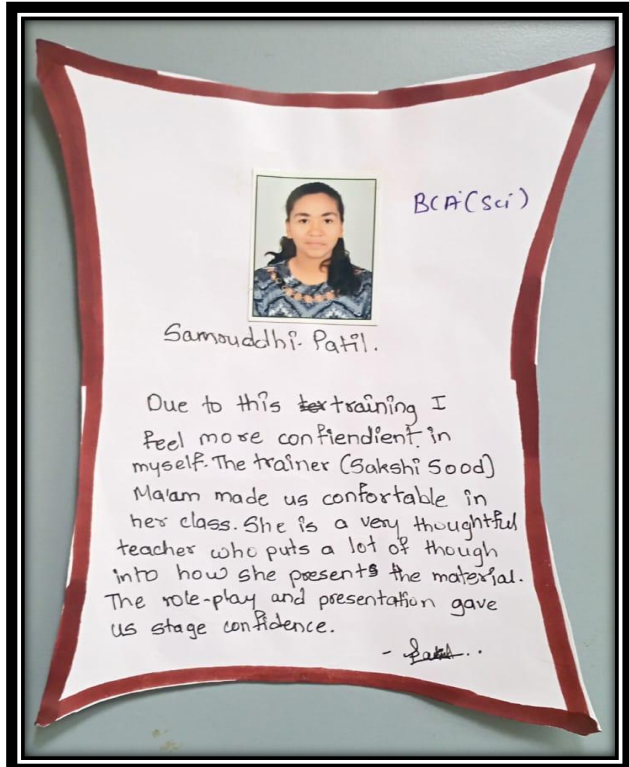 BCA (Sci)
Samouddhi. Patil.
Due to this training I
feel more confiendient in
myself. The trainer (Sakshi Sood)
Ma'am made us confortable in
her class. She is a very thoughtful
teacher who puts a lot of though
into how she presents the material.
The role-play and presentation gave
us stage confidence.